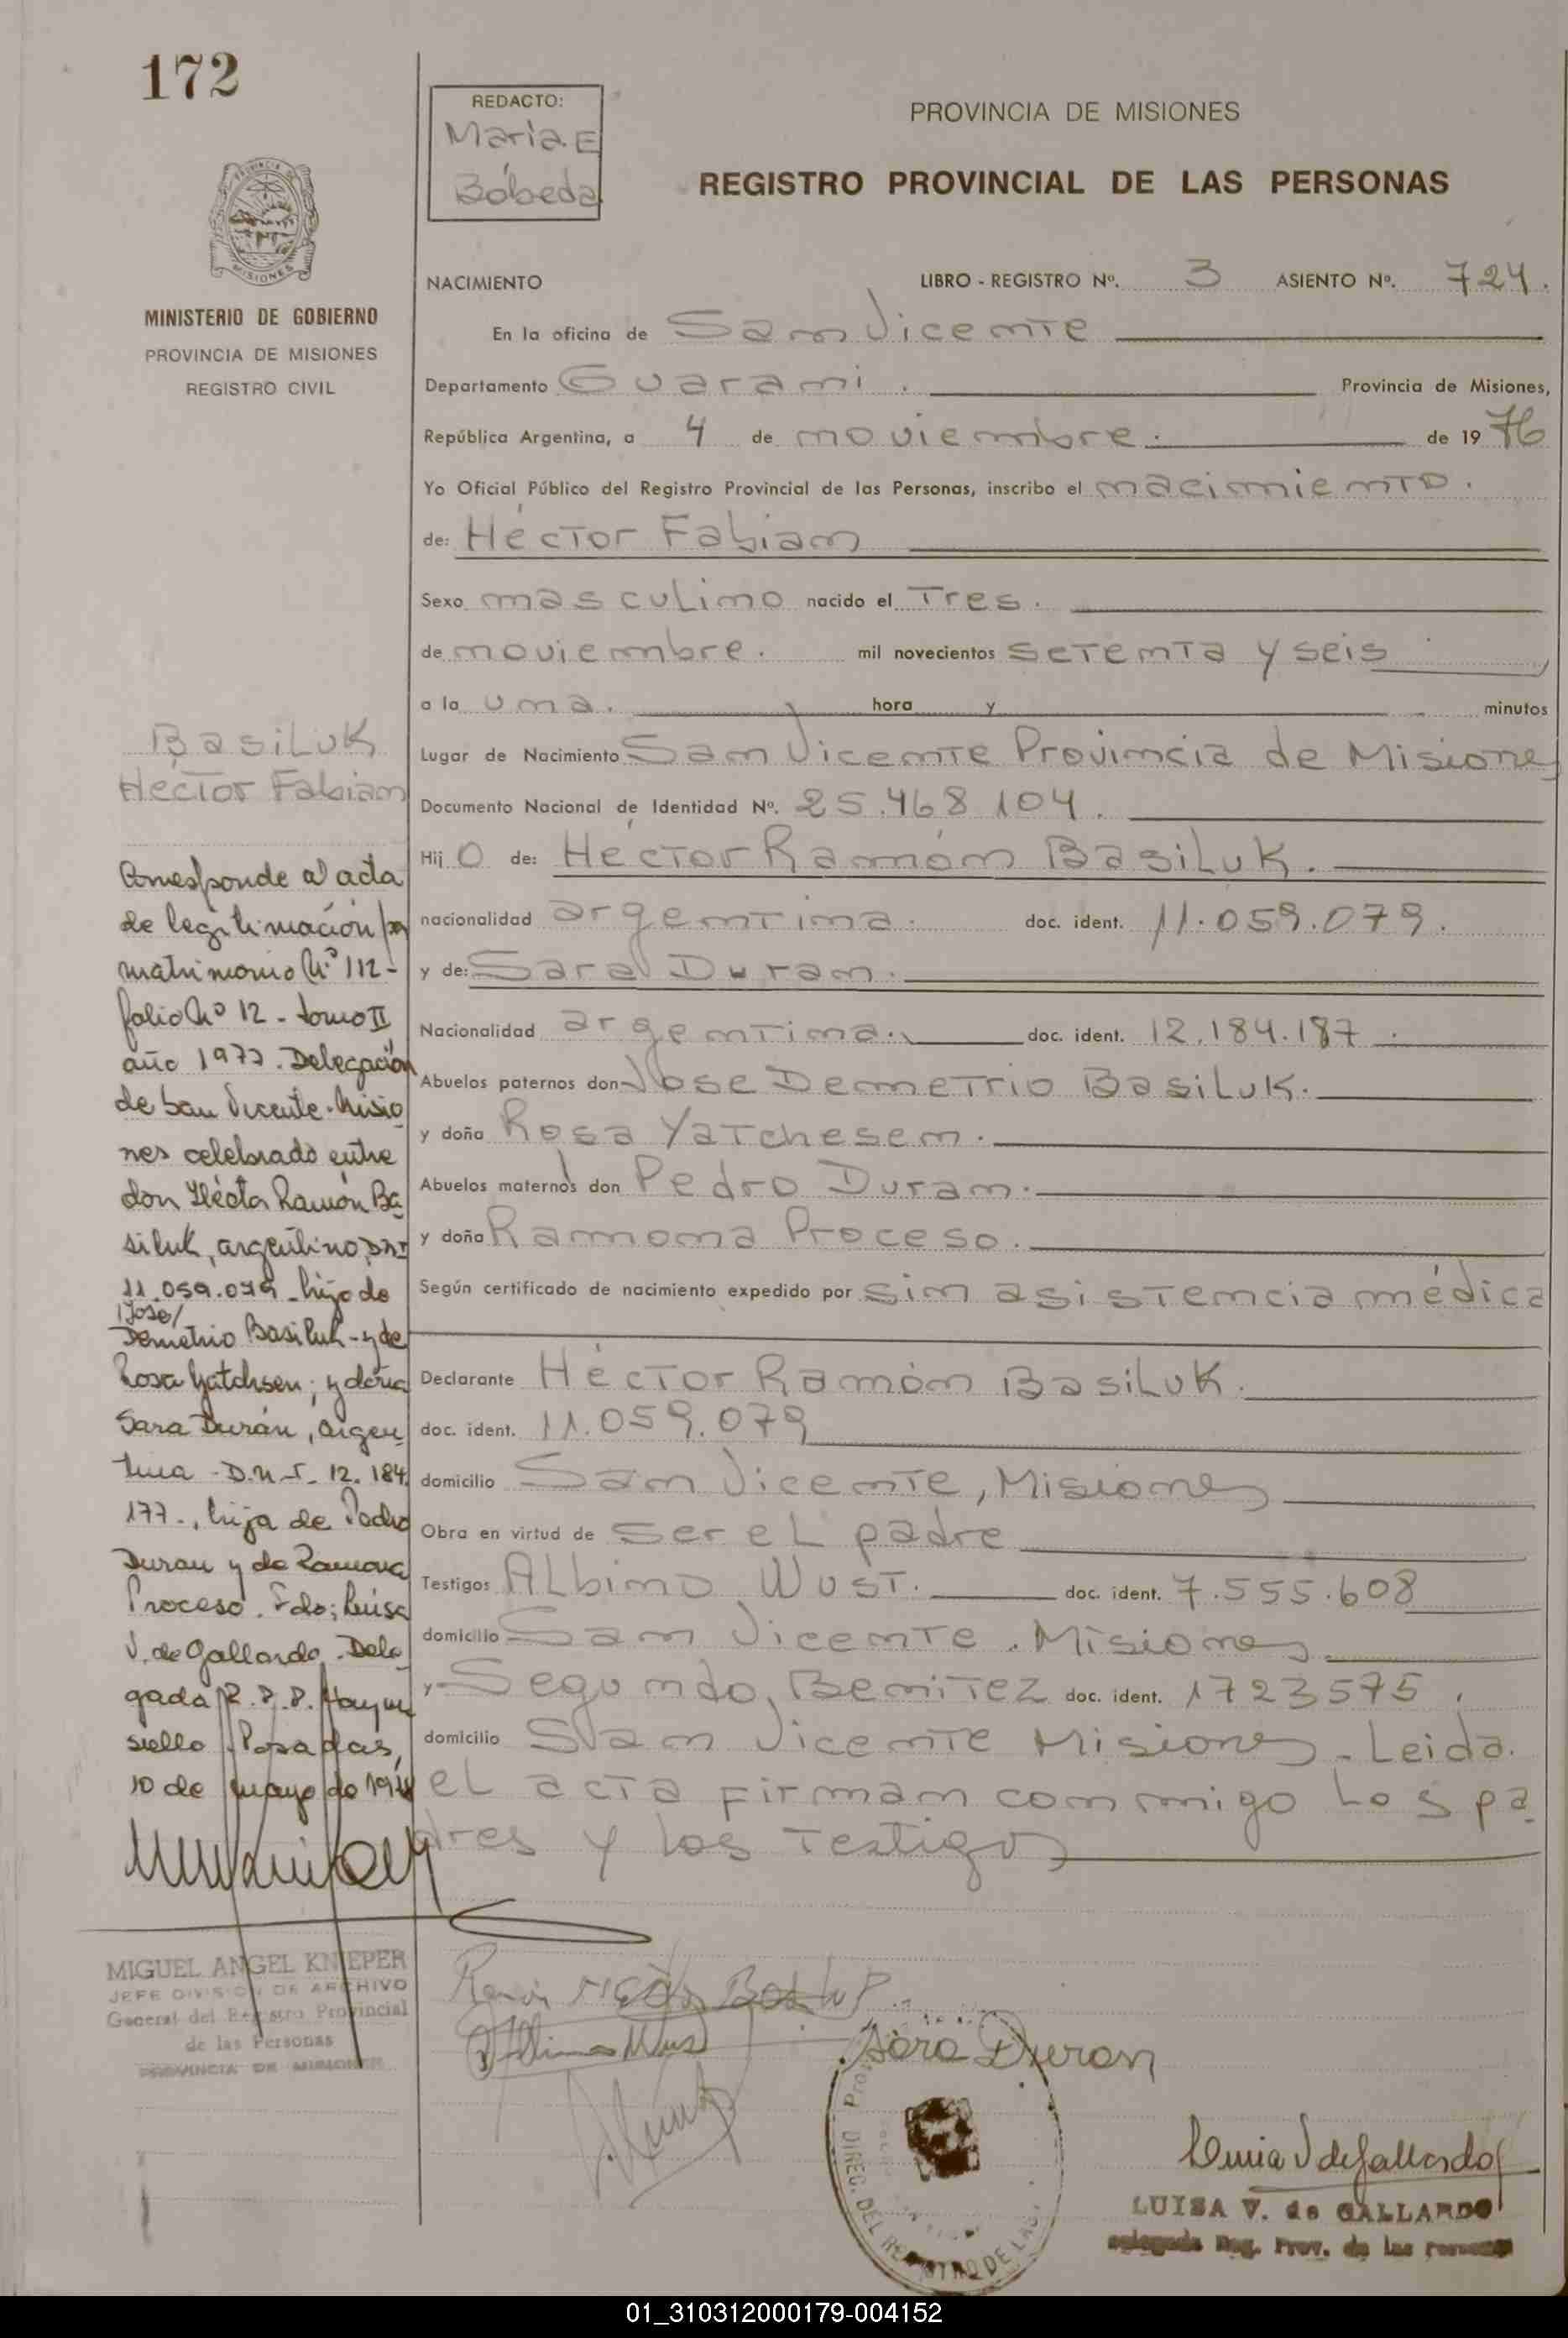 172
REDACTO:
Maria E
Bóbeda
PROVINCIA DE MISIONES
REGISTRO PROVINCIAL DE LAS PERSONAS
MINISTERIO DE GOBIERNO
PROVINCIA DE MISIONES
REGISTRO CIVIL
NACIMIENTO LIBRO - REGISTRO Nº. 3 ASIENTO Nº. 724.
En la oficina de San Vicente
Departamento Guarani. Provincia de Misiones,
República Argentina, a 4 de noviembre. de 1976
Yo Oficial Público del Registro Provincial de las Personas, inscribo el nacimiento.
de: Héctor Fabian
Sexo masculino nacido el Tres.
de noviembre. mil novecientos setenta y seis
a la una. hora y minutos
Lugar de Nacimiento San Vicente Provincia de Misiones
Documento Nacional de Identidad Nº. 25.468 104.
Hijo de: Héctor Ramón Basiluk.
nacionalidad argentina. doc. ident. 11.059.079.
y de: Sara Duran.
Nacionalidad argentina. doc. ident. 12.184.187.
Abuelos paternos don Jose Demetrio Basiluk.
y doña Rosa Yatchesen.
Abuelos maternos don Pedro Duran.
y doña Ramona Proceso.
Según certificado de nacimiento expedido por sin asistencia médica
Declarante Héctor Ramón Basiluk.
doc. ident. 11.059.079
domicilio San Vicente, Misiones
Obra en virtud de ser el padre
Testigos Albino Wust. doc. ident. 7.555.608
domicilio San Vicente. Misiones
y Segundo, Benitez doc. ident. 1723575.
domicilio San Vicente Misiones - Leida.
el acta firman conmigo los pa
dres y los testigos
Basiluk
Héctor Fabian
Corresponde al acta
de legitimación por
matrimonio Nº 112-
folio Nº 12 - tomo II
año 1977. Delegación
de San Vicente-Misio
nes celebrado entre
don Héctor Ramón Ba
siluk, argentino, DNI
11.059.079 - hijo de
/Jose/
Demetrio Basiluk - y de
Rosa Yatchsen; y doña
Sara Durán, argen
tina - D.N.I. 12.184.
177-, hija de Pedro
Duran y de Ramona
Proceso. Fdo; Luisa
V. de Gallardo. Dele
gada R.P.P. Hay un
sello. Posadas,
10 de mayo de 1978
MIGUEL ANGEL KNIEPER
JEFE DIVISION DE ARCHIVO
General del Registro Provincial
de las Personas
PROVINCIA DE MISIONES
Albino Wust
Sara Duran
DIREC. DEL REGISTRO DE LAS
Luisa V de Gallardo
LUISA V. de GALLARDO
Delegada Reg. Prov. de las Personas
01_310312000179-004152